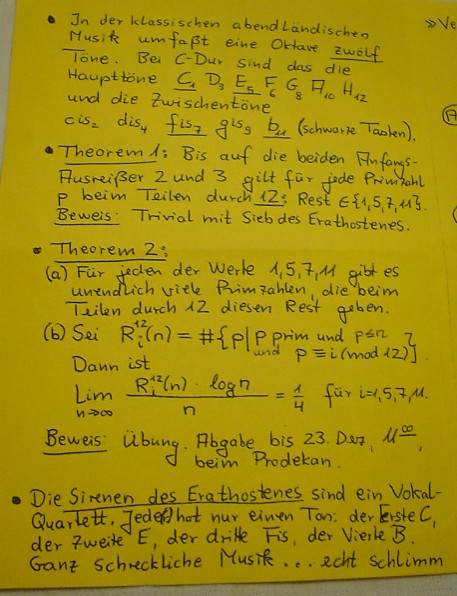 • In der klassischen abendländischen
Musik umfaßt eine Oktave zwölf
Töne. Bei C-Dur sind das die
Haupttöne C₁ D₃ E₅ F₆ G₈ A₁₀ H₁₂
und die Zwischentöne
cis₂ dis₄ fis₇ gis₉ b₁₁ (schwarze Tasten).
• Theorem 1: Bis auf die beiden Anfangs-
Ausreißer 2 und 3 gilt für jede Primzahl
p beim Teilen durch 12: Rest ∈ {1,5,7,11}.
Beweis: Trivial mit Sieb des Erathostenes.
• Theorem 2:
(a) Für jeden der Werte 1,5,7,11 gibt es
unendlich viele Primzahlen, die beim
Teilen durch 12 diesen Rest geben.
(b) Sei R_i^12(n) = #{p | p prim und p≤n
und p ≡ i (mod 12)}
Dann ist
Lim n→∞ R_i^12(n) · log n / n = 1/4 für i=1,5,7,11.
Beweis: Übung. Abgabe bis 23. Dez, 11⁰⁰,
beim Prodekan.
• Die Sirenen des Erathostenes sind ein Vokal-
Quartett. Jede(r) hat nur einen Ton: der Erste C,
der Zweite E, der dritte Fis, der Vierte B.
Ganz schreckliche Musik ... echt schlimm
» Ve